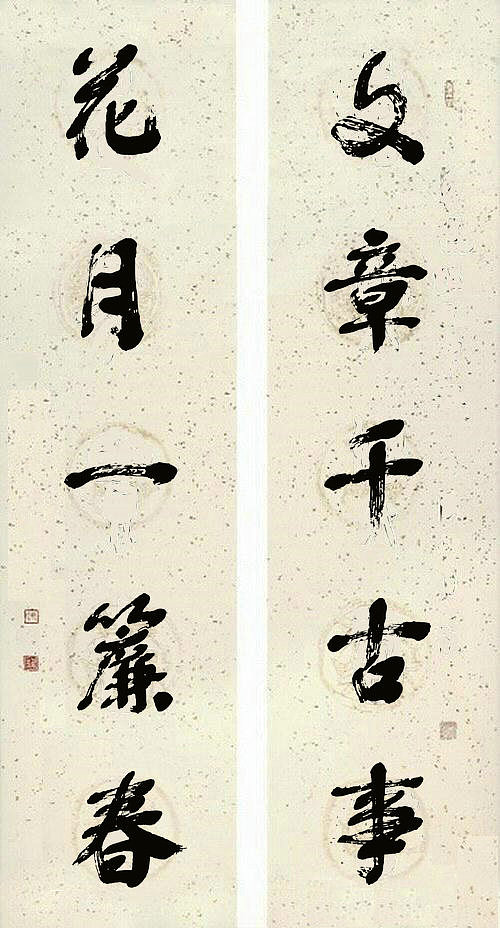 文章千古事
花月一簾春